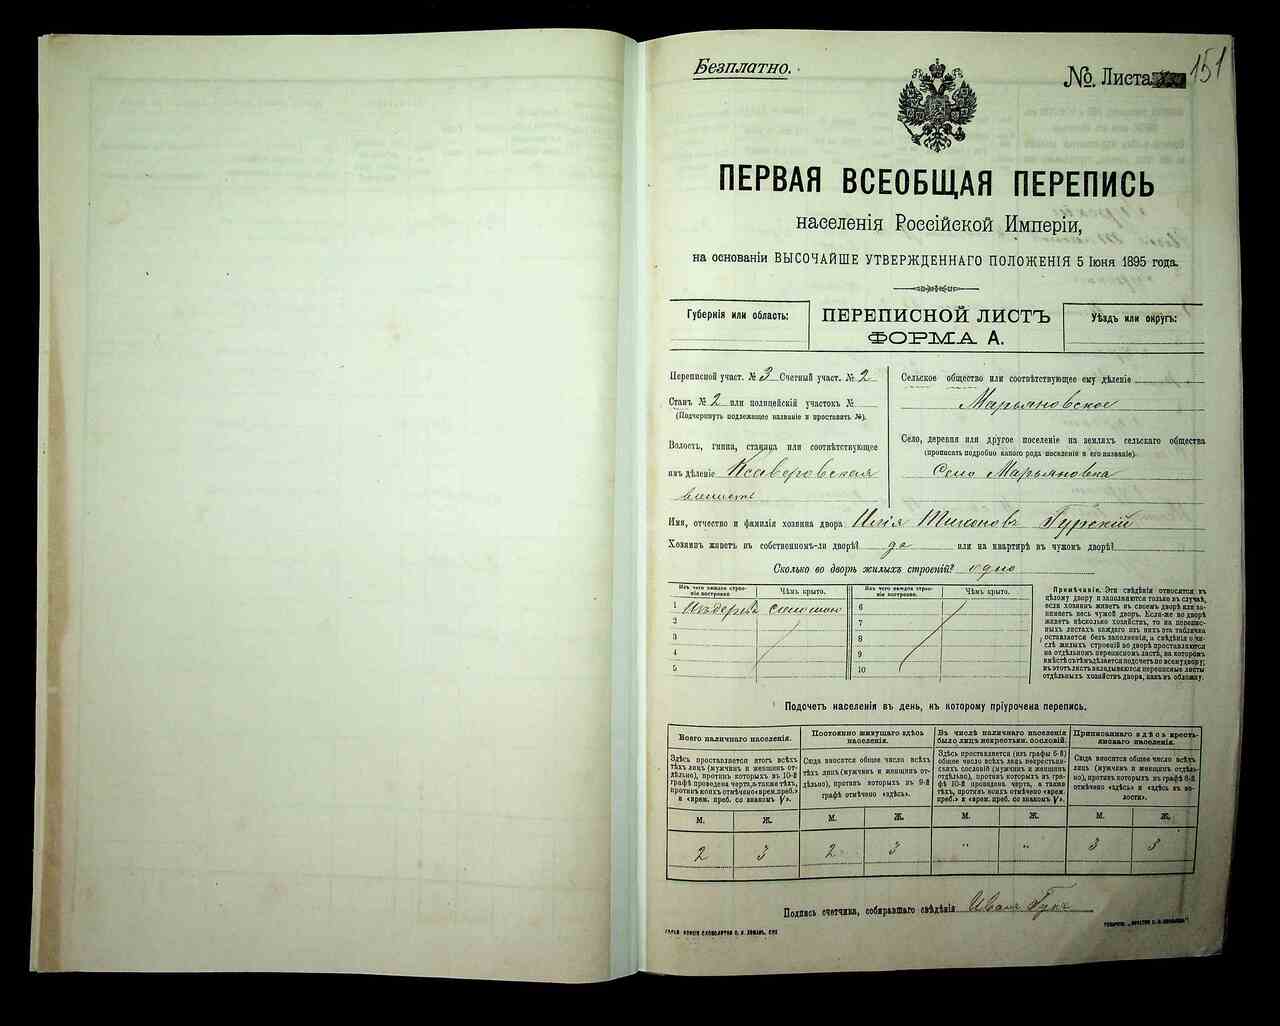 Безплатно.
№ Листа 151
ПЕРВАЯ ВСЕОБЩАЯ ПЕРЕПИСЬ
населенія Россійской Имперіи,
на основаніи ВЫСОЧАЙШЕ УТВЕРЖДЕННАГО ПОЛОЖЕНІЯ 5 Іюня 1895 года.
Губернія или область:
ПЕРЕПИСНОЙ ЛИСТЪ
ФОРМА А.
Уѣздъ или округъ:
Переписной участ. № 3 Счетный участ. № 2
Станъ № 2 или полицейскій участокъ №
(Подчеркнуть подлежащее названіе и проставить №).
Волость, гмина, станица или соотвѣтствующее
имъ дѣленіе Ксаверовская
волость
Сельское общество или соотвѣтствующее ему дѣленіе
Марьяновское
Село, деревня или другое поселеніе на земляхъ сельскаго общества
(прописать подробно какого рода поселеніе и его названіе)
Село Марьяновка
Имя, отчество и фамилія хозяина двора Илія Тихоновъ Гурскій
Хозяинъ живетъ въ собственномъ-ли дворѣ? да или на квартирѣ въ чужомъ дворѣ?
Сколько во дворѣ жилыхъ строеній? одно
Изъ чего каждое строе-
ніе построено.
Чѣмъ крыто.
Изъ чего каждое строе-
ніе построено.
Чѣмъ крыто.
1 Изъ дерева соломою 6
2 7
3 8
4 9
5 10
Примѣчаніе. Эти свѣдѣнія относятся къ
цѣлому двору и заполняются только въ случаѣ,
если хозяинъ живетъ въ своемъ дворѣ или за-
нимаетъ весь чужой дворъ. Если-же во дворѣ
живетъ нѣсколько хозяйствъ, то на перепис-
ныхъ листахъ каждаго изъ нихъ эта табличка
оставляется безъ заполненія, а свѣдѣнія о чи-
слѣ жилыхъ строеній во дворѣ проставляются
на отдѣльномъ переписномъ листѣ, на которомъ
вмѣстѣ съ тѣмъ дѣлается подсчетъ по всему двору;
въ этотъ листъ вкладываются переписные листы
отдѣльныхъ хозяйствъ двора, какъ въ обложку.
Подсчетъ населенія въ день, къ которому пріурочена перепись.
Всего наличнаго населенія.
Постоянно живущаго здѣсь
населенія.
Въ числѣ наличнаго населенія
было лицъ некрестьян. сословій.
Приписаннаго здѣсь кресть-
янскаго населенія.
Здѣсь проставляется итогъ всѣхъ
тѣхъ лицъ (мужчинъ и женщинъ от-
дѣльно), противъ которыхъ въ 10-й
графѣ проведена черта, а также тѣхъ,
противъ коихъ отмѣчено «врем. преб.»
и «врем. преб. со знакомъ V».
Сюда вносится общее число всѣхъ
тѣхъ лицъ (мужчинъ и женщинъ от-
дѣльно), противъ которыхъ въ 9-й
графѣ отмѣчено «здѣсь».
Здѣсь проставляется (изъ графы 6-й)
общее число всѣхъ лицъ некрестьян-
скихъ сословій (мужчинъ и женщинъ
отдѣльно), противъ которыхъ въ гра-
фѣ 10-й проведена черта, а также
тѣхъ, противъ коихъ отмѣчено «врем.
преб.» и «врем. преб. со знакомъ V».
Сюда вносится общее число всѣхъ
лицъ (мужчинъ и женщинъ отдѣль-
но), противъ которыхъ въ графѣ 8-й
отмѣчено «здѣсь» и «здѣсь въ во-
лости».
М. Ж. М. Ж. М. Ж. М. Ж.
2 3 2 3 " " 3 3
Подпись счетчика, собиравшаго свѣдѣнія Иванъ Гукъ